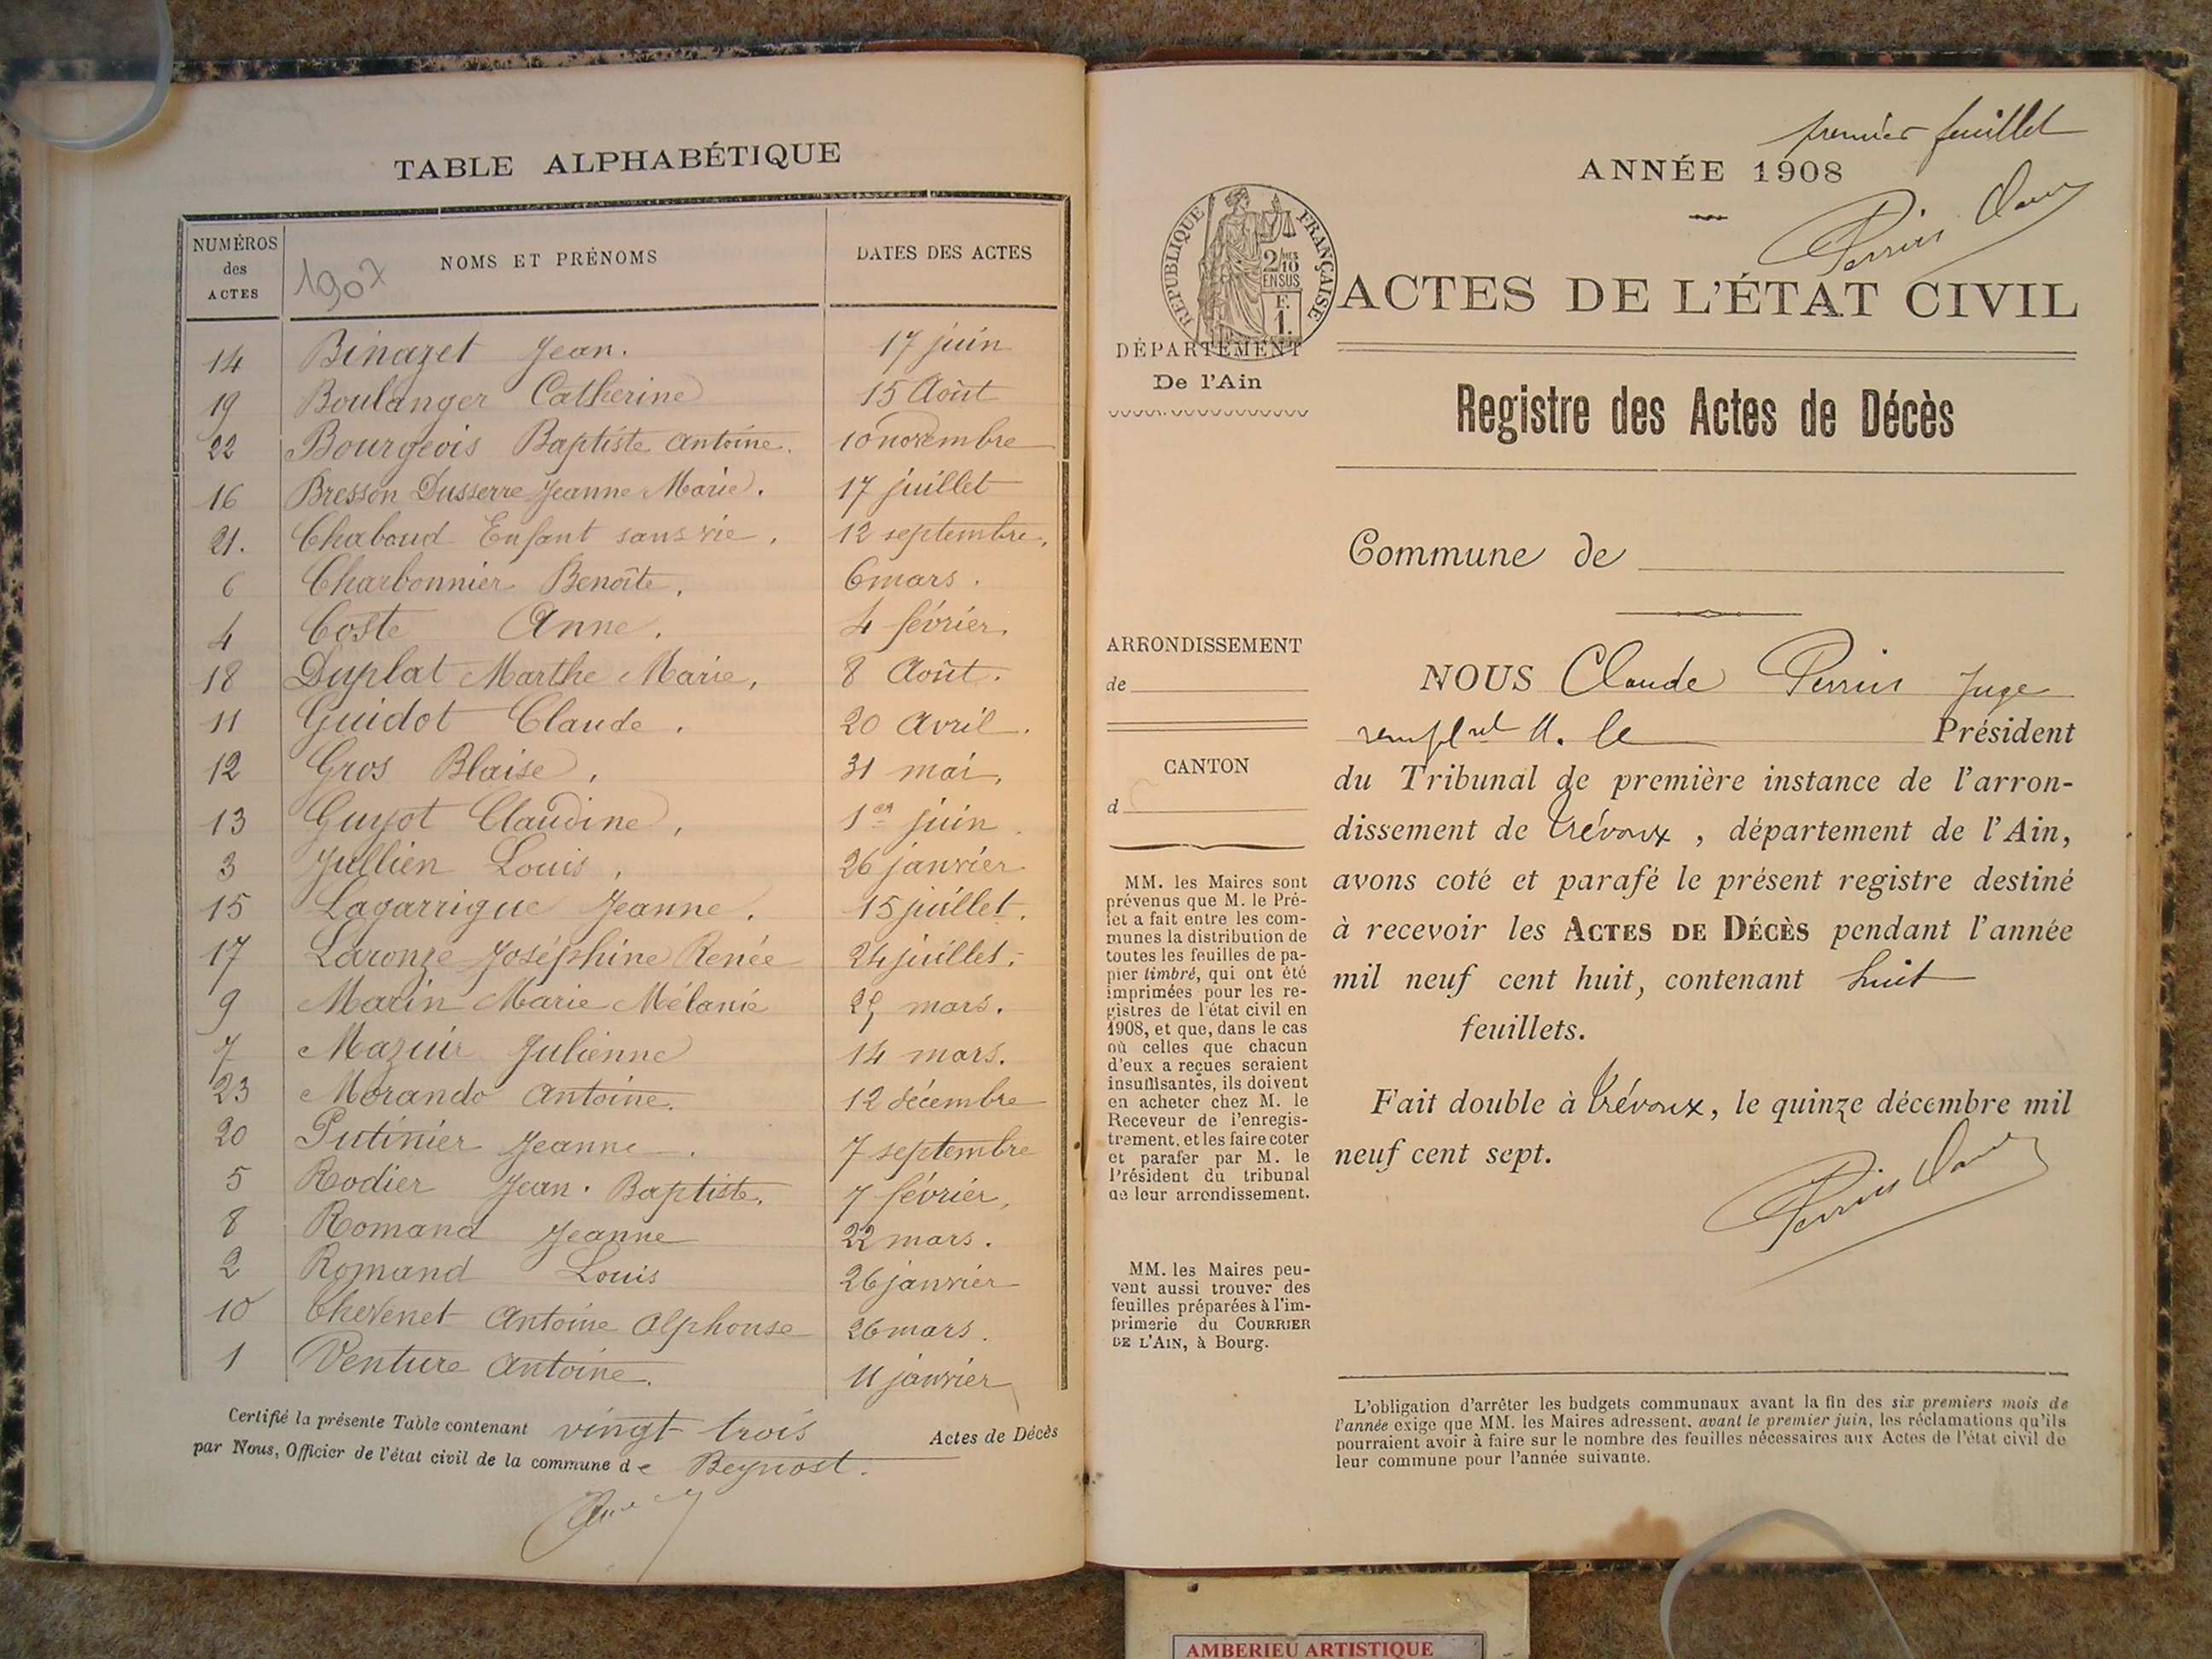 TABLE ALPHABÉTIQUE
NUMÉROS des ACTES
1907 NOMS ET PRÉNOMS
DATES DES ACTES
14 Binazet Jean. 17 juin
19 Boulanger Catherine 15 Août
22 Bourgeois Baptiste Antoine. 10 novembre
16 Bresson Dusserre Jeanne Marie. 17 juillet
21. Chaboud Enfant sans vie, 12 septembre,
6 Charbonnier Benoîte, 6 mars.
4 Coste Anne, 4 février,
18 Duplat Marthe Marie, 8 Août.
11 Guidot Claude, 20 Avril.
12 Gros Blaise, 31 mai,
13 Guyot Claudine, 1er juin
3 Jullien Louis, 26 janvier
15 Lagarrigue Jeanne. 15 juillet.
17 Laronze Joséphine Renée 24 juillet.
9 Marin Marie Mélanie 25 mars.
7 Mazuir Julienne 14 mars.
23 Morando Antoine. 12 décembre
20 Putinier Jeanne. 7 septembre
5 Rodier Jean-Baptiste. 7 février,
8 Romand Jeanne 22 mars.
2 Romand Louis 26 janvier
10 Thevenet Antoine Alphonse 26 mars.
1 Venture Antoine. 11 janvier
Certifié la présente Table contenant vingt trois Actes de Décès
par Nous, Officier de l'état civil de la commune de Beynost.
premier feuillet
ANNÉE 1908
Perrin Claude
RÉPUBLIQUE FRANÇAISE
2/10 EN SUS
F. 1.
ACTES DE L'ÉTAT CIVIL
DÉPARTEMENT
De l'Ain
Registre des Actes de Décès
Commune de
ARRONDISSEMENT
de
CANTON
d
MM. les Maires sont
prévenus que M. le Pré-
fet a fait entre les com-
munes la distribution de
toutes les feuilles de pa-
pier timbré, qui ont été
imprimées pour les re-
gistres de l'état civil en
1908, et que, dans le cas
où celles que chacun
d'eux a reçues seraient
insuffisantes, ils doivent
en acheter chez M. le
Receveur de l'enregis-
trement, et les faire coter
et parafer par M. le
Président du tribunal
de leur arrondissement.
MM. les Maires peu-
vent aussi trouver des
feuilles préparées à l'im-
primerie du COURRIER
DE L'AIN, à Bourg.
NOUS Claude Perrin Juge
rempl.nt M. le Président
du Tribunal de première instance de l'arron-
dissement de Trévoux, département de l'Ain,
avons coté et parafé le présent registre destiné
à recevoir les ACTES DE DÉCÈS pendant l'année
mil neuf cent huit, contenant huit
feuillets.
Fait double à Trévoux, le quinze décembre mil
neuf cent sept.
Perrin Claude
L'obligation d'arrêter les budgets communaux avant la fin des six premiers mois de
l'année exige que MM. les Maires adressent, avant le premier juin, les réclamations qu'ils
pourraient avoir à faire sur le nombre des feuilles nécessaires aux Actes de l'état civil de
leur commune pour l'année suivante.
AMBERIEU ARTISTIQUE